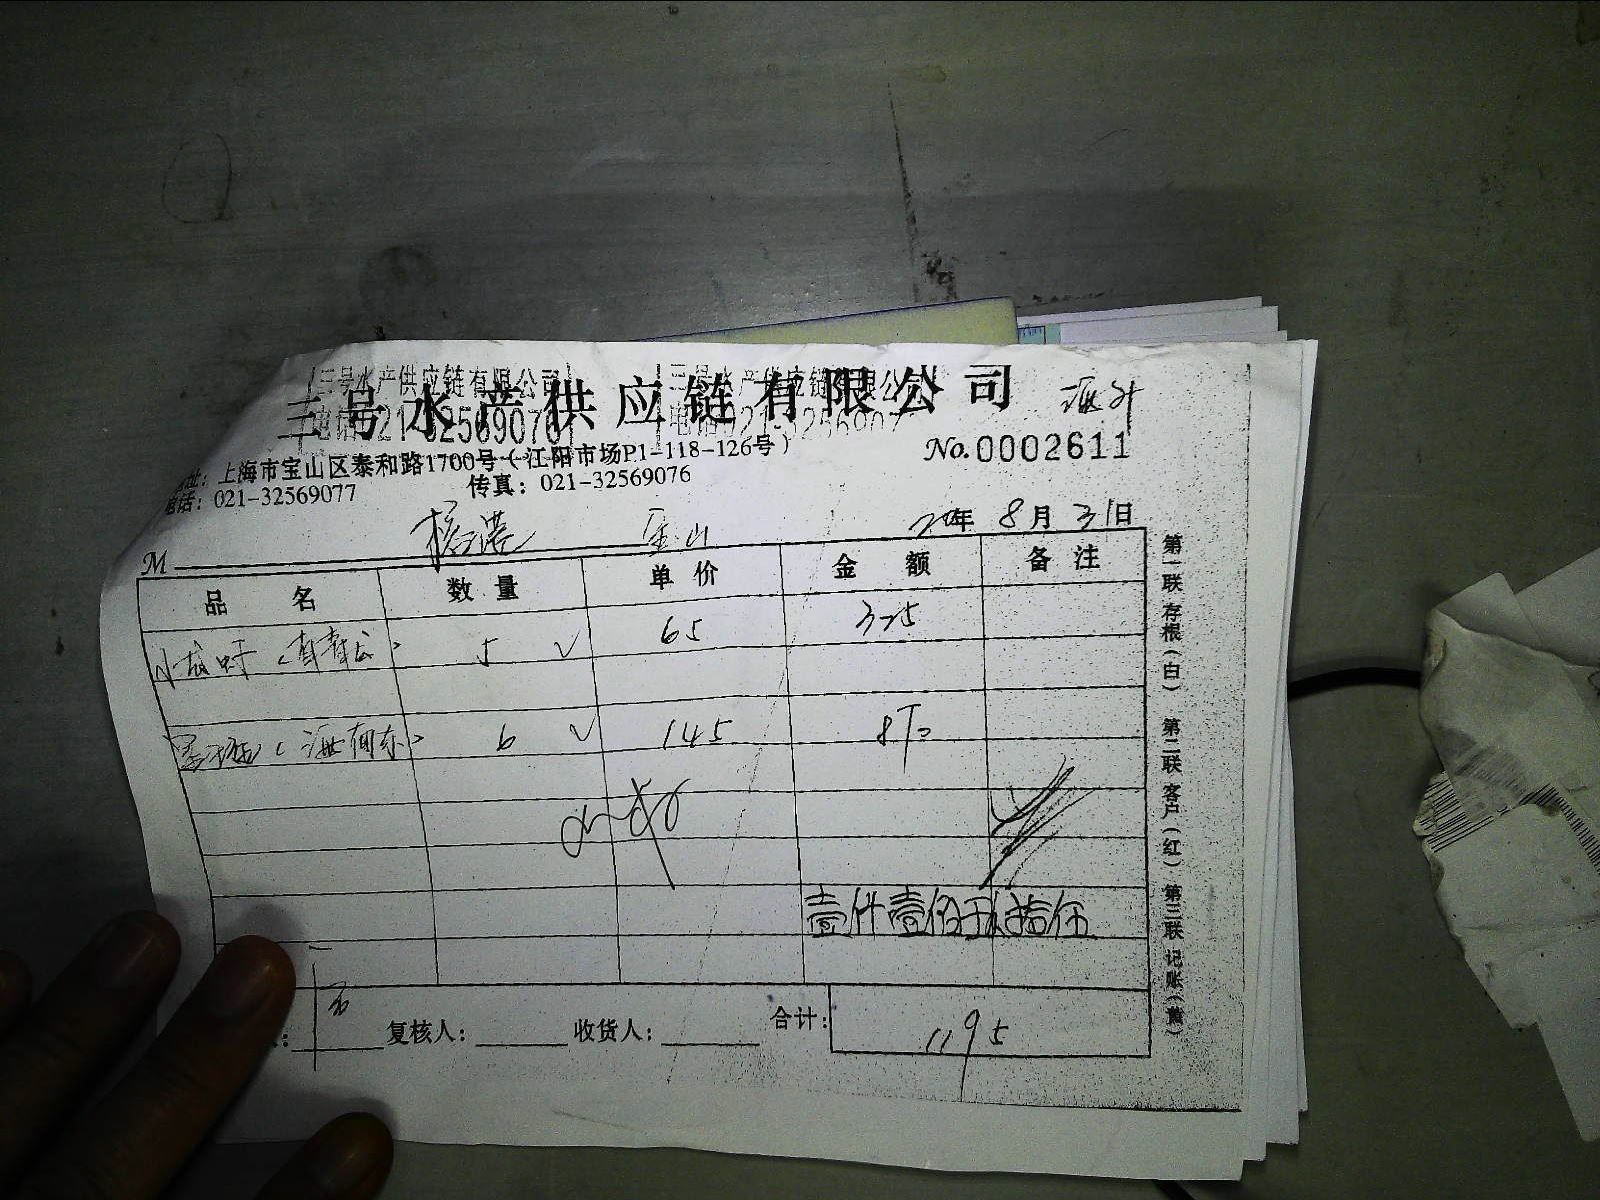 三号水产供应链有限公司
三号水产供应链有限公司 三号水产供应链有限公司
电话021-32569076 电话021-3256907
No.0002611
地址：上海市宝山区泰和路1700号（江阳市场P1-118-126号）
电话：021-32569077 传真：021-32569076
年 8月31日
M
品名 数量 单价 金额 备注
小龙虾 5 √ 65 325
6 √ 145 870
壹仟壹佰玖拾伍
复核人： 收货人： 合计： 1195
第一联 存根（白） 第二联 客户（红） 第三联 记账（黄）